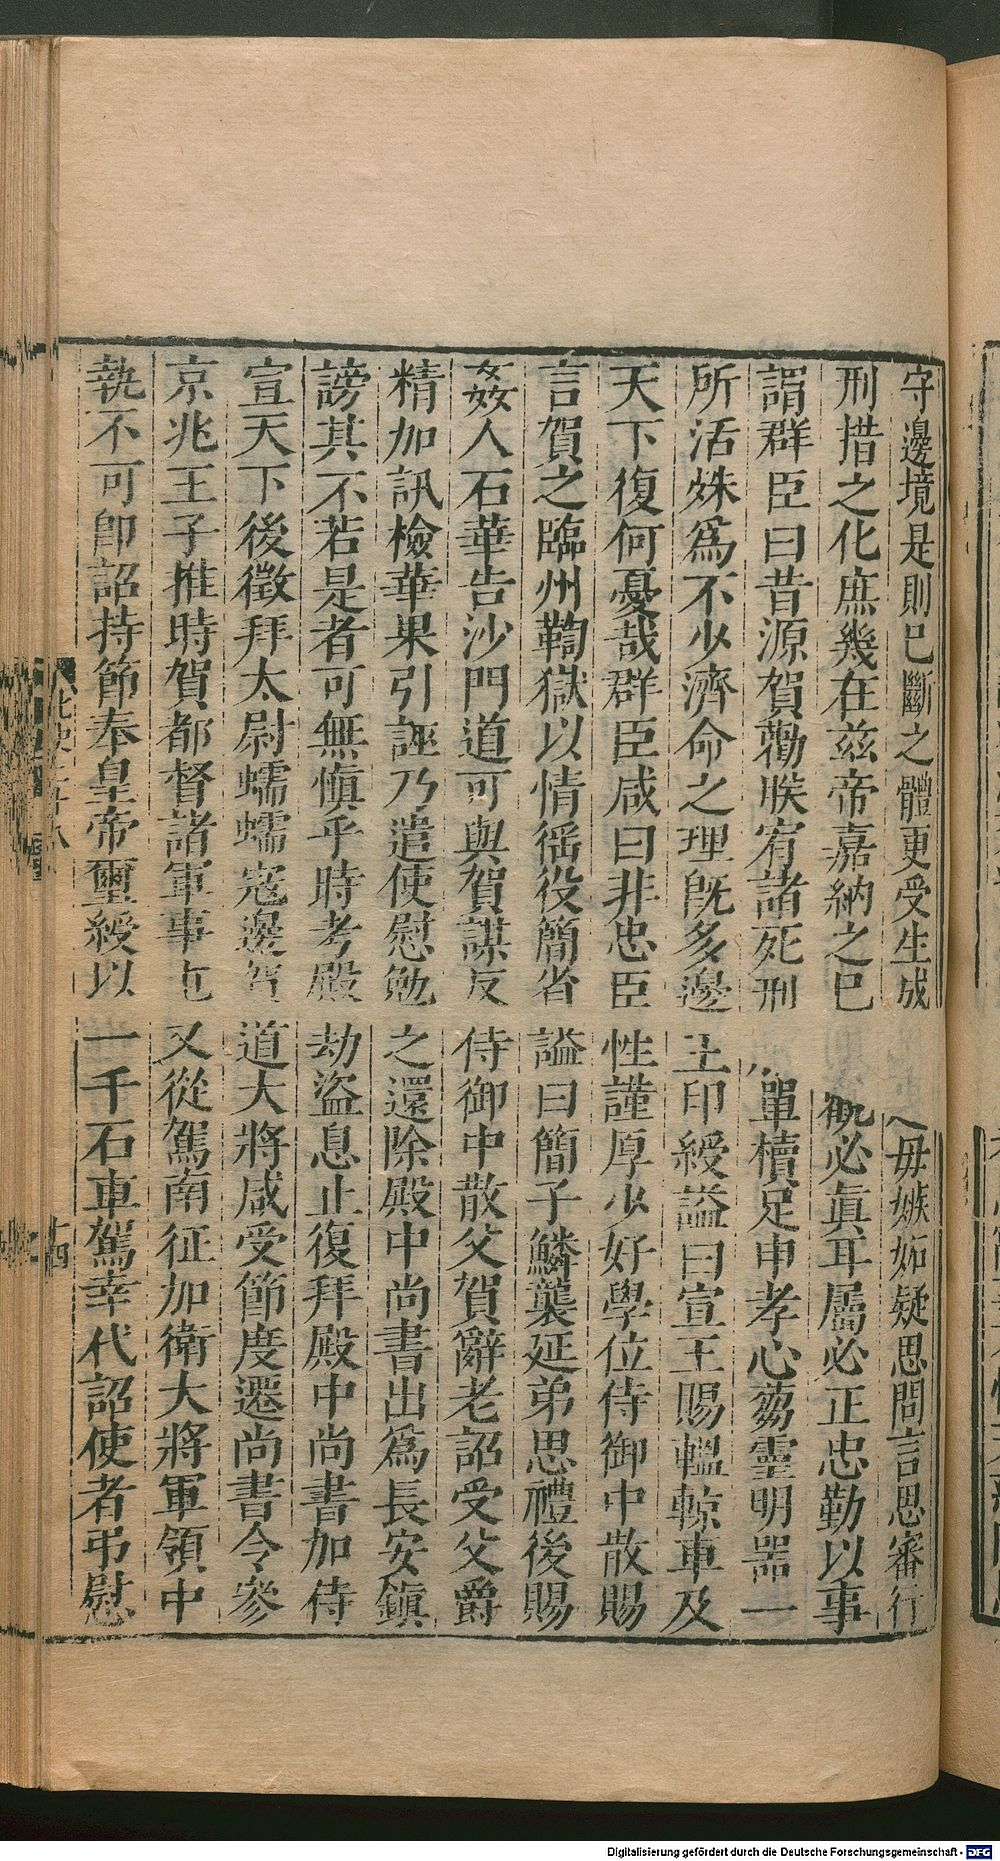 守邊境是則巳斷之體更受生成毋嫉妬疑思問言思審行
刑措之化庶幾在茲帝嘉納之巳觀必真耳屬必正忠勤以事
謂群臣曰昔源賀勸朕宥諸死刑單櫝足申孝心芻靈明器一
所活殊爲不少濟命之理旣多邊王印綬謚曰宣王賜轀輬車及
天下復何憂哉群臣咸曰非忠臣性謹厚少好學位侍御中散賜
言賀之臨州鞫獄以情徭役簡省謚曰簡子鱗襲延弟思禮後賜
姦人石華告沙門道可與賀謀反侍御中散父賀辭老詔受父爵
精加訊檢華果引誣乃遣使慰勉之還除殿中尚書出爲長安鎮
謗其不若是者可無慎乎時考殿劫盜息止復拜殿中尚書加侍
宣天下後徵拜太尉蠕蠕寇邊賀道大將咸受節度遷尚書令參
京兆王子推時賀都督諸軍事屯又從駕南征加衛大將軍領中
執不可卽詔持節奉皇帝璽綬以一千石車駕幸代詔使者弔慰
北史二十八 十四
Digitalisierung gefördert durch die Deutsche Forschungsgemeinschaft - DFG